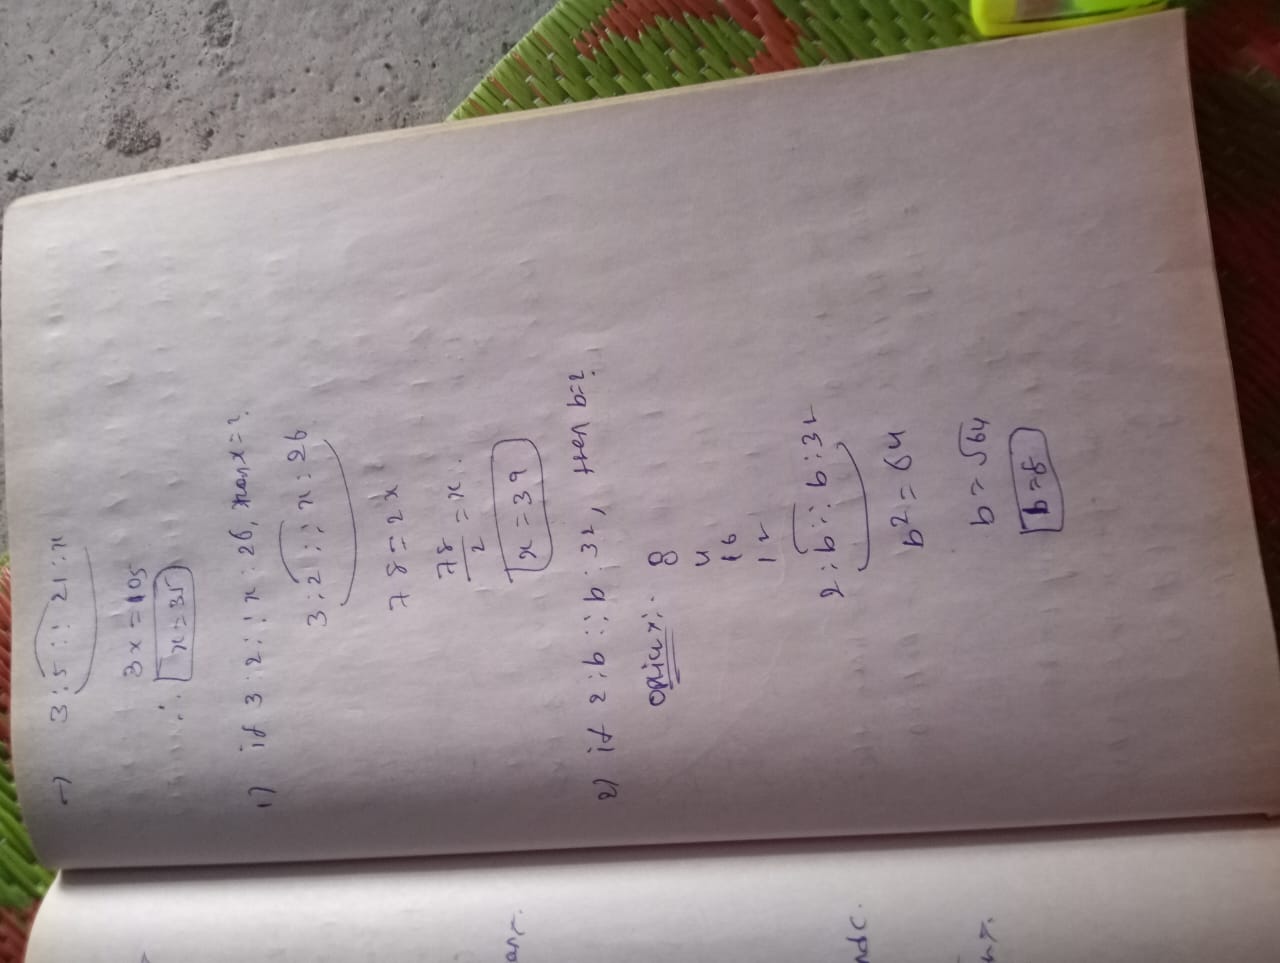 → 3 : 5 :: 21 : x
3x = 105
∴ x = 35
1) if 3 : 2 :: x : 26, then x = ?
3 : 2 :: x : 26
78 = 2x
78/2 = x.
x = 39
2) if 2 : b :: b : 32, then b = ?
8
4
16
12
2 : b :: b : 32
b² = 64
b = √64
b = 8